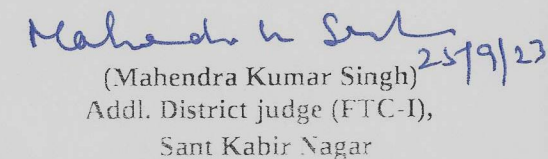 25/9/23
(Mahendra Kumar Singh)
Addl. District judge (FTC-I),
Sant Kabir Nagar